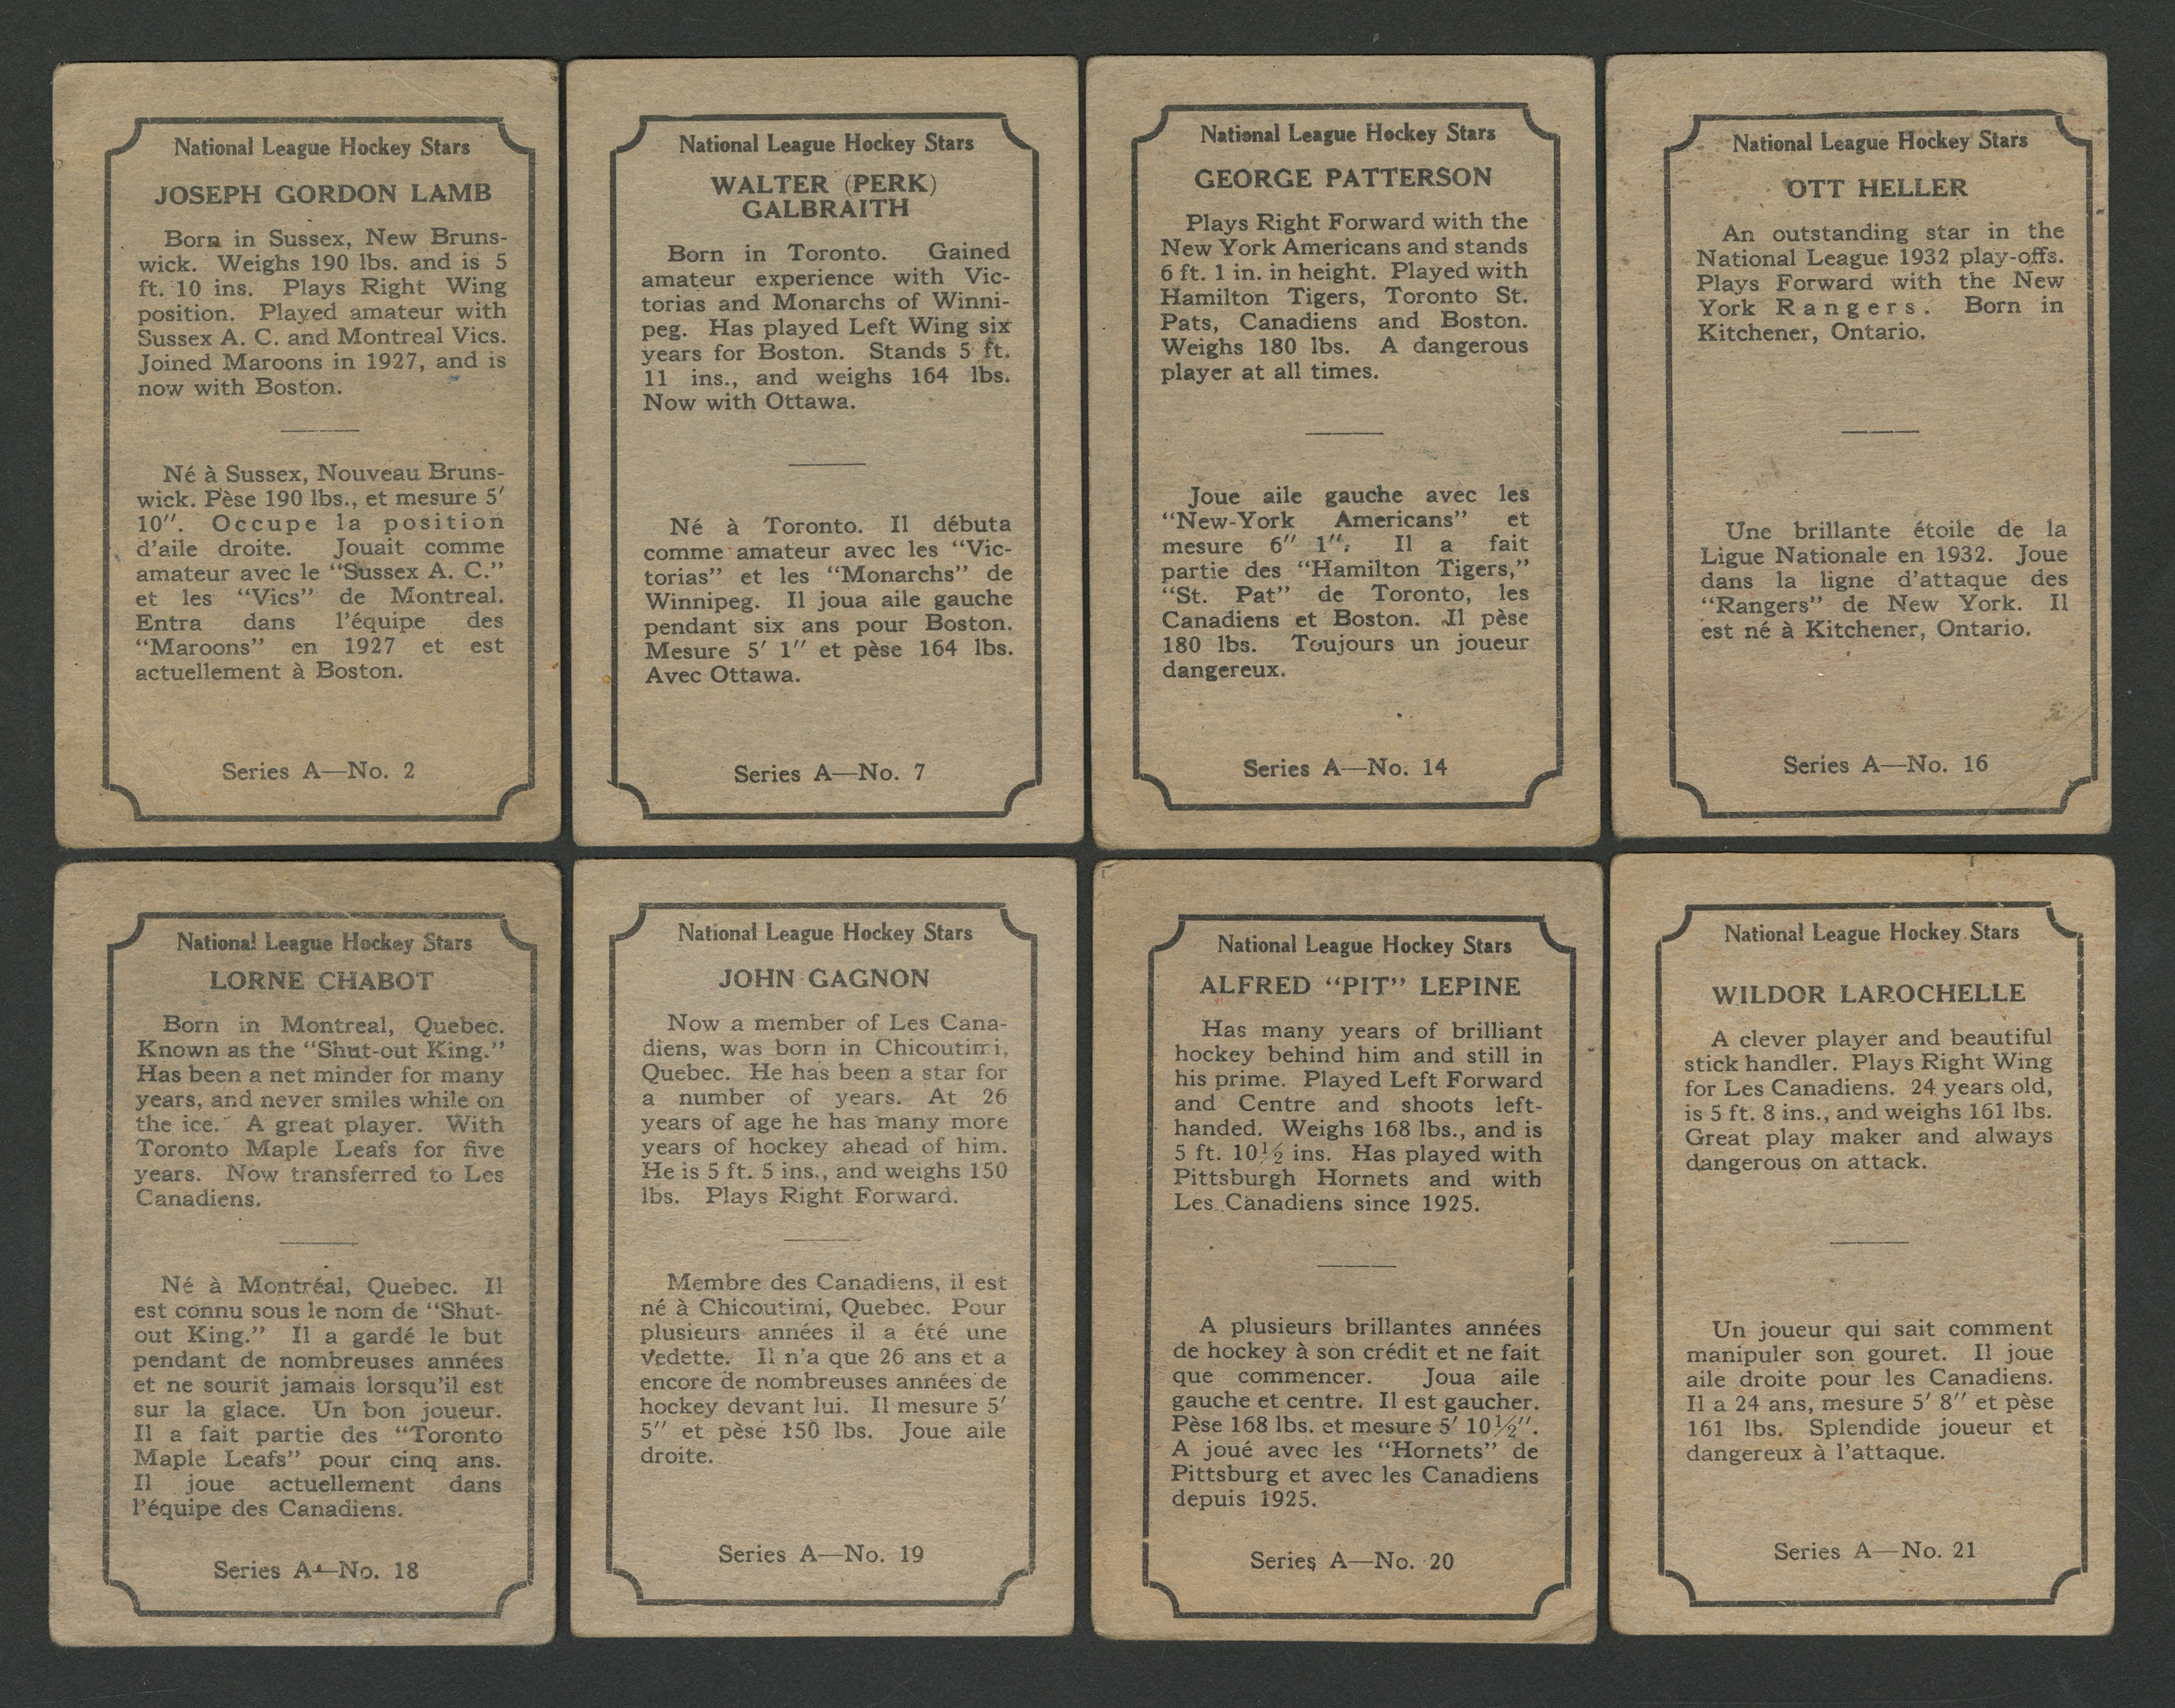 National League Hockey Stars
JOSEPH GORDON LAMB
Born in Sussex, New Bruns-
wick. Weighs 190 lbs. and is 5
ft. 10 ins. Plays Right Wing
position. Played amateur with
Sussex A. C. and Montreal Vics.
Joined Maroons in 1927, and is
now with Boston.
Né à Sussex, Nouveau Bruns-
wick. Pèse 190 lbs., et mesure 5′
10″. Occupe la position
d'aile droite. Jouait comme
amateur avec le “Sussex A. C.”
et les “Vics” de Montreal.
Entra dans l'équipe des
“Maroons” en 1927 et est
actuellement à Boston.
Series A—No. 2
National League Hockey Stars
WALTER (PERK)
GALBRAITH
Born in Toronto. Gained
amateur experience with Vic-
torias and Monarchs of Winni-
peg. Has played Left Wing six
years for Boston. Stands 5 ft.
11 ins., and weighs 164 lbs.
Now with Ottawa.
Né à Toronto. Il débuta
comme amateur avec les “Vic-
torias” et les “Monarchs” de
Winnipeg. Il joua aile gauche
pendant six ans pour Boston.
Mesure 5′ 1″ et pèse 164 lbs.
Avec Ottawa.
Series A—No. 7
National League Hockey Stars
GEORGE PATTERSON
Plays Right Forward with the
New York Americans and stands
6 ft. 1 in. in height. Played with
Hamilton Tigers, Toronto St.
Pats, Canadiens and Boston.
Weighs 180 lbs. A dangerous
player at all times.
Joue aile gauche avec les
“New-York Americans” et
mesure 6″ 1″. Il a fait
partie des “Hamilton Tigers,”
“St. Pat” de Toronto, les
Canadiens et Boston. Il pèse
180 lbs. Toujours un joueur
dangereux.
Series A—No. 14
National League Hockey Stars
OTT HELLER
An outstanding star in the
National League 1932 play-offs.
Plays Forward with the New
York Rangers. Born in
Kitchener, Ontario.
Une brillante étoile de la
Ligue Nationale en 1932. Joue
dans la ligne d'attaque des
“Rangers” de New York. Il
est né à Kitchener, Ontario.
Series A—No. 16
National League Hockey Stars
LORNE CHABOT
Born in Montreal, Quebec.
Known as the “Shut-out King.”
Has been a net minder for many
years, and never smiles while on
the ice. A great player. With
Toronto Maple Leafs for five
years. Now transferred to Les
Canadiens.
Né à Montréal, Quebec. Il
est connu sous le nom de “Shut-
out King.” Il a gardé le but
pendant de nombreuses années
et ne sourit jamais lorsqu'il est
sur la glace. Un bon joueur.
Il a fait partie des “Toronto
Maple Leafs” pour cinq ans.
Il joue actuellement dans
l'équipe des Canadiens.
Series A—No. 18
National League Hockey Stars
JOHN GAGNON
Now a member of Les Cana-
diens, was born in Chicoutimi,
Quebec. He has been a star for
a number of years. At 26
years of age he has many more
years of hockey ahead of him.
He is 5 ft. 5 ins., and weighs 150
lbs. Plays Right Forward.
Membre des Canadiens, il est
né à Chicoutimi, Quebec. Pour
plusieurs années il a été une
vedette. Il n'a que 26 ans et a
encore de nombreuses années de
hockey devant lui. Il mesure 5′
5″ et pèse 150 lbs. Joue aile
droite.
Series A—No. 19
National League Hockey Stars
ALFRED “PIT” LEPINE
Has many years of brilliant
hockey behind him and still in
his prime. Played Left Forward
and Centre and shoots left-
handed. Weighs 168 lbs., and is
5 ft. 10½ ins. Has played with
Pittsburgh Hornets and with
Les Canadiens since 1925.
A plusieurs brillantes années
de hockey à son crédit et ne fait
que commencer. Joua aile
gauche et centre. Il est gaucher.
Pèse 168 lbs. et mesure 5′ 10½″.
A joué avec les “Hornets” de
Pittsburg et avec les Canadiens
depuis 1925.
Series A—No. 20
National League Hockey Stars
WILDOR LAROCHELLE
A clever player and beautiful
stick handler. Plays Right Wing
for Les Canadiens. 24 years old,
is 5 ft. 8 ins., and weighs 161 lbs.
Great play maker and always
dangerous on attack.
Un joueur qui sait comment
manipuler son gouret. Il joue
aile droite pour les Canadiens.
Il a 24 ans, mesure 5′ 8″ et pèse
161 lbs. Splendide joueur et
dangereux à l'attaque.
Series A—No. 21